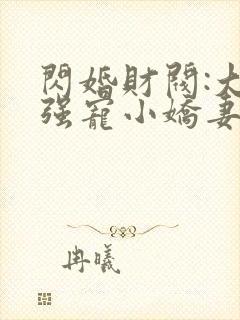 閃婚財閥:大
强寵小嬌妻
冉曦